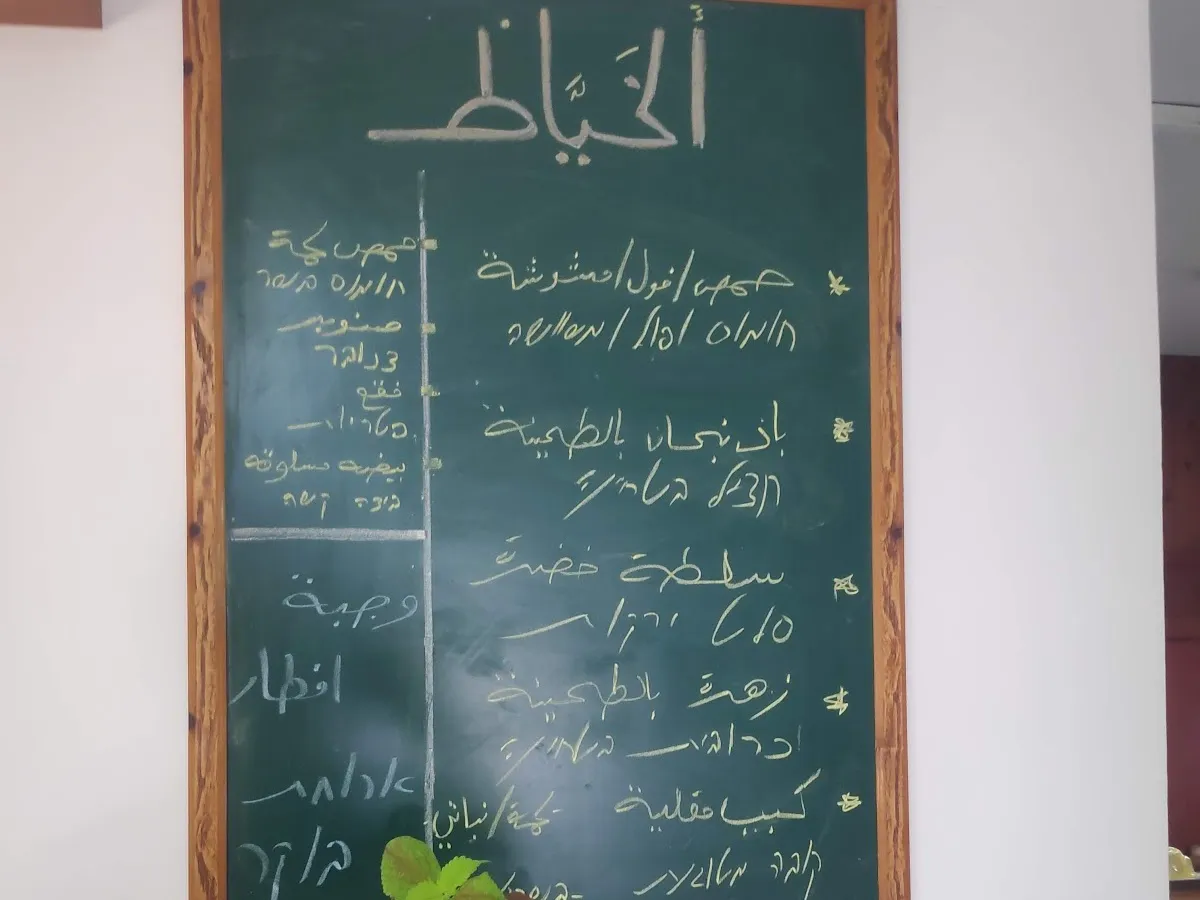 ألخيَّاظ
حمص/فول/مشوشة
חומוס/פול/משוושה
باذنجان بالطحينة
חציל בטחינה
سلطة خضرة
סלט ירקות
زهرة بالطحينة
כרובית בטחינה
كبب مقلية لحمة/نباتي
קובה מטוגנת
حمص لحمة
חומוס בשר
صنوبر
צנובר
فقع
פטריות
بيضه مسلوقه
ביצה קשה
وجبة
افطار
ארוחת
בוקר